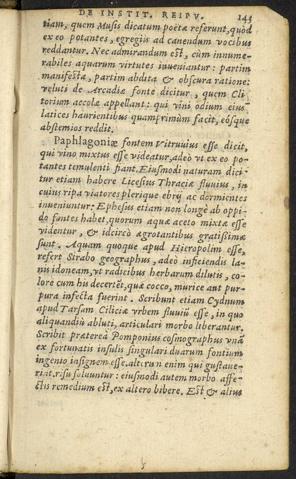 DE INSTIT. REIPV. 143
tiam, quem Musis dicatum poëtæ referunt, quòd
ex eo potantes, egregiis ad canendum vocibus
reddantur. Nec admirandum est, cùm innume-
rabiles aquarum virtutes inueniantur: partim
manifesta, partim abdita & obscura ratione:
veluti de Arcadiæ fonte dicitur, quem Cli-
torium accolæ appellant: qui vini odium eius
latices haurientibus quamprimùm facit, eósque
abstemios reddit.
Paphlagoniæ fontem Vitruuius esse dicit,
qui vino mixtus esse videatur, adeò vt ex eo po-
tantes temulenti fiant. Eiusmodi naturam dici-
tur etiam habere Licesius Thraciæ fluuius, in
cuius ripa viatores plerique ebrij ac dormientes
inueniuntur: Ephesius etiam non longè ab oppi-
do fontes habet, quorum aquæ aceto mixtæ esse
videntur, & idcircò ægrotantibus gratissimæ
sunt. Aquam quoque apud Hieropolim esse,
refert Strabo geographus, adeò inficiendis la-
nis idoneam, vt radicibus herbarum dilutis, co-
lore cum his decertét, quæ cocco, murice aut pur-
pura infecta fuerint. Scribunt etiam Cydnum
apud Tarsum Ciliciæ vrbem fluuiū esse, in quo
aliquandiu abluti, articulari morbo liberantur.
Scribit præterea Pomponius cosmographus vna
ex fortunatis insulis singulari duarum fontium
ingenio insignem esse. alterun enim qui gustaue-
rit, risu soluuntur: eiusmodi autem morbo affe-
ctis remedium est, ex altero bibere. Est & alius